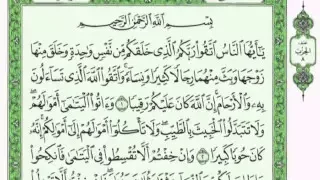 بِسْمِ ٱللَّهِ ٱلرَّحْمَٰنِ ٱلرَّحِيمِ
يَٰٓأَيُّهَا ٱلنَّاسُ ٱتَّقُوا۟ رَبَّكُمُ ٱلَّذِى خَلَقَكُم مِّن نَّفْسٍ وَٰحِدَةٍ وَخَلَقَ مِنْهَا
زَوْجَهَا وَبَثَّ مِنْهُمَا رِجَالًا كَثِيرًا وَنِسَآءً ۚ وَٱتَّقُوا۟ ٱللَّهَ ٱلَّذِى تَسَآءَلُونَ
بِهِۦ وَٱلْأَرْحَامَ ۚ إِنَّ ٱللَّهَ كَانَ عَلَيْكُمْ رَقِيبًا ١ وَءَاتُوا۟ ٱلْيَتَٰمَىٰٓ أَمْوَٰلَهُمْ ۖ
وَلَا تَتَبَدَّلُوا۟ ٱلْخَبِيثَ بِٱلطَّيِّبِ ۖ وَلَا تَأْكُلُوٓا۟ أَمْوَٰلَهُمْ إِلَىٰٓ أَمْوَٰلِكُمْ ۚ إِنَّهُۥ
كَانَ حُوبًا كَبِيرًا ٢ وَإِنْ خِفْتُمْ أَلَّا تُقْسِطُوا۟ فِى ٱلْيَتَٰمَىٰ فَٱنكِحُوا۟